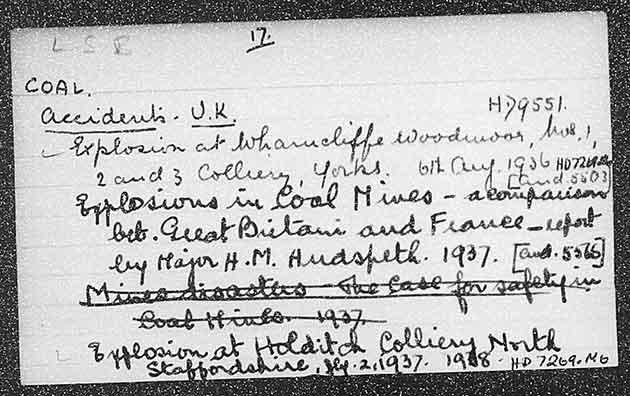 L S E
17.
COAL.
Accidents - U.K.
HD9551.
Explosion at Wharncliffe Woodmoor, Nos. 1,
2 and 3 Colliery, Yorks. 6th Aug. 1936 HD7269.M6
[Cmd. 5503
Explosions in Coal Mines - a comparison
bet. Great Britain and France - report
by Major H. M. Hudspeth. 1937. [Cmd. 5566]
Mines disasters - The Case for safety in
Coal Mines. 1937.
Explosion at Holditch Colliery North
Staffordshire, Jly. 2, 1937. 1938. HD7269.M6